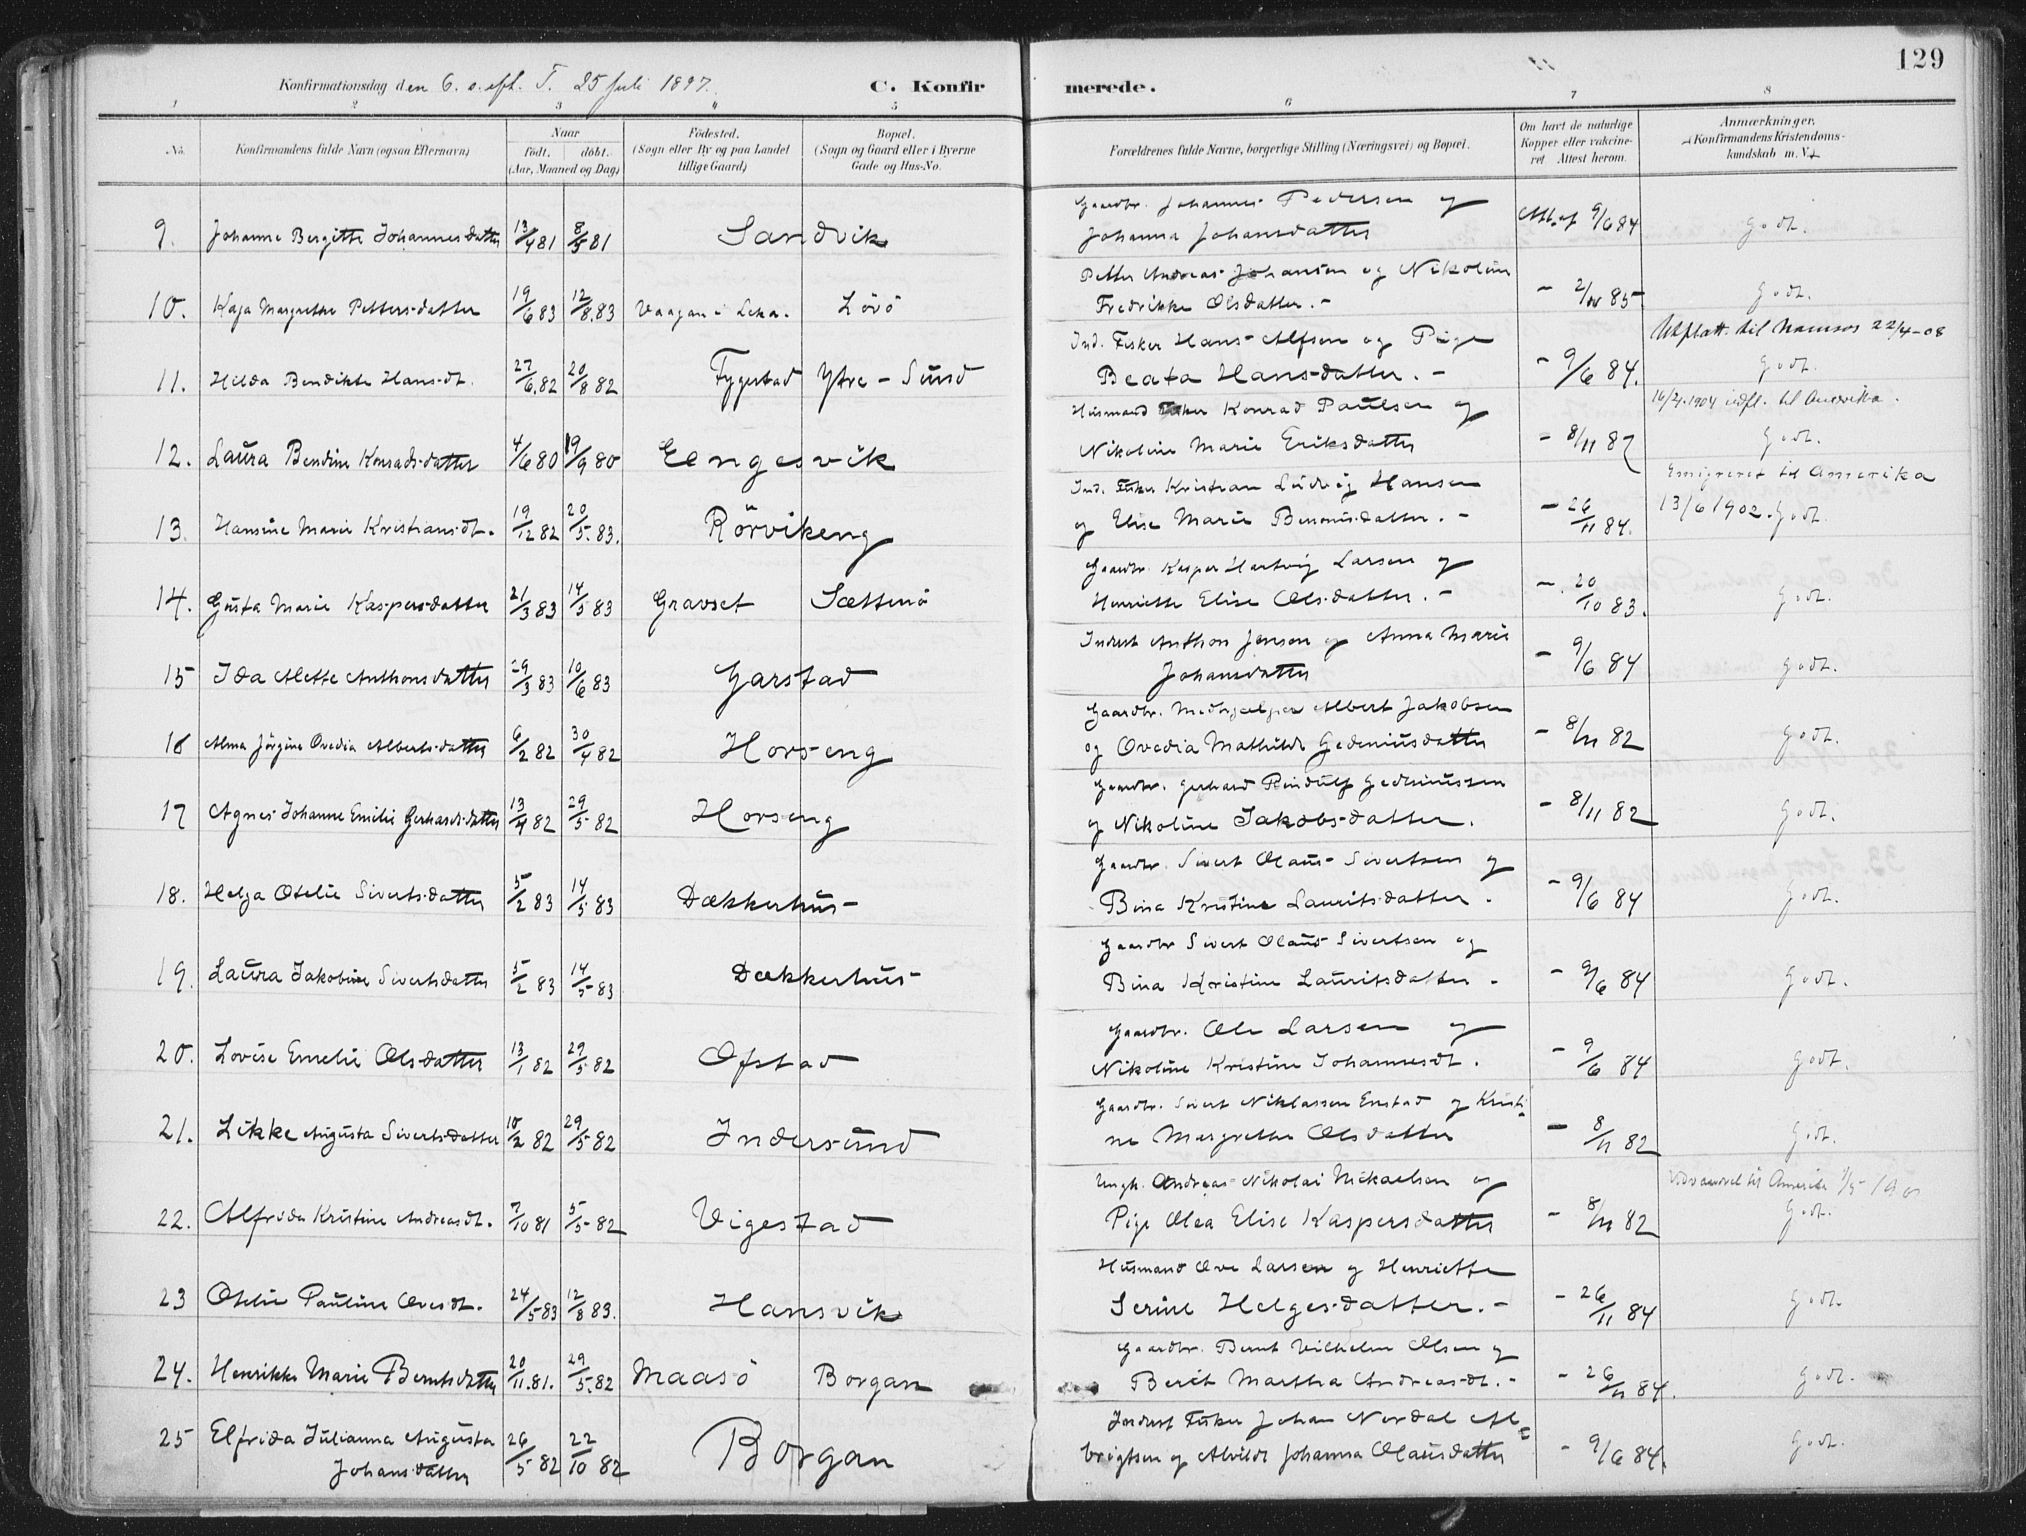 129
Konfirmationsdag den 6. s. eft. T. 25 Juli 1897.
C. Konfirmerede.
1 2 3 4 5 6 7 8
No.
Konfirmandens fulde Navn (ogsaa Efternavn)
Naar
født. døbt.
(Aar, Maaned og Dag)
Fødested.
(Sogn eller By og paa Landet
tillige Gaard)
Bopæl.
(Sogn og Gaard eller i Byerne
Gade og Hus-No.
Forældrenes fulde Navne, borgerlige Stilling (Næringsvei) og Bopæl.
Om havt de naturlige
Kopper eller vakcine-
ret Attest herom.
Anmærkninger.
(Konfirmandens Kristendoms-
kundskab m. V.)
9. Johanne Bergitte Johannesdatter 13/4 81 8/5 81 Sandvik
Gaardbr. Johannes Pedersen og
Johanna Johansdatter
Att. af 9/6 84 Godt.
10. Kaja Margrethe Pettersdatter 19/6 83 12/8 83 Vaagan i Leka. Løvö
Petter Andreas Johansen og Nikoline
Fredrikke Olsdatter. -
- 2/ 85 Godt.
Utflatt. til Namsos 22/4-08
11. Hilda Bendikte Hansdt. 27/6 82 20/8 82 Fygestad Ytre-Sund
Ind. Fisker Hans Alfsen og Pige
Beata Hansdatter. -
- 9/6 84. Godt.
16/4.1904 udfl. til Amerika.
12. Laura Bendine Konradsdatter 4/6 80 19/9 80 Engesvik
Husmand Fisker Konrad Paulsen og
Nikoline Marie Eriksdatter
- 8/11 87 Godt.
Emigreret til Amerika
13/6 1902. Godt.
13. Hansine Marie Kristiansdt. 19/12 82 20/5. 83. Rörvikeng
Ind. Fisker Kristian Ludvig Hansen
og Elise Marie Beroniusdatter. -
- 26/11 84.
14. Gusta Marie Kaspersdatter 21/3 83 14/5 83 Gravset Sættenö
Gaardbr. Kasper Hartvig Larsen og
Henriette Elise Olsdatter. -
- 20/10 83. Godt.
15 Ida Alette Anthonsdatter 29/3 83 10/6 83 Garstad
Inderst Anthon Jensen og Anna Marie
Johansdatter
- 9/6 84 Godt.
16 Alma Jörgine Ovedia Albertsdatter 6/2 82 30/4 82 Horseng
Gaardbr. Medhjælper Albert Jakobsen
og Ovedia Mathilde Gedeniusdatter
- 8/11 82 Godt.
17 Agnes Johanne Emilie Gerhardsdatter 13/4 82 29/5 82 Horseng
Gaardbr. Gerhard Rindulf Gedeniussen
og Nikoline Jakobsdatter.
- 8/11 82 Godt.
18. Helga Otelie Sivertsdatter 5/2 83 14/5 83 Dækkerhus
Gaardbr. Sivert Olaus Sivertsen og
Bina Kristine Lauritsdatter.
- 9/6 84 Godt.
19. Laura Jakobine Sivertsdatter 5/2 83 14/5 83 Dækkerhus
Gaardbr Sivert Olaus Sivertsen og
Bina Kristine Lauritsdatter -
- 9/6 84 Godt.
20. Lovise Emelie Olsdatter 13/1 82 29/5 82 Ofstad
Gaardbr. Ole Larsen og
Nikoline Kristine Johannesdt.
- 9/6 84 Godt.
21. Likke Augusta Sivertsdatter 10/2 82 29/5 82 Indersund
Gaardbr. Sivert Niklassen Enstad og Kristi-
ne Margrethe Olsdatter
- 8/11 82 Godt.
22. Alfrida Kristine Andreasdt. 7/10 81 5/5 82 Vigestad
Ungk. Andreas Nikolai Mickaelsen og
Pige Olea Elise Kaspersdatter
- 8/11 82 Godt.
Udvandret til Amerika
23 Otelie Pauline Ovesdt. 24/5 83 12/8 83. Hansvik
Husmand Ove Larsen og Henriette
Serine Helgesdatter. -
- 26/11 84 Godt.
24. Henrikke Marie Berntsdatter 20/11. 81. 29/5. 82 Maasö Borgan
Gaardbr. Bernt Vilhelm Olsen og
Berit Martha Andreasdt. -
- 26/11 84. Godt.
25 Elfrida Julianna Augusta
Johansdatter 26/5 82 22/10 82 Borgan
Inderst Fisker Johan Nordal Al=
brigtsen og Alvilde Johanna Olausdatter
- 9/6 84. Godt.